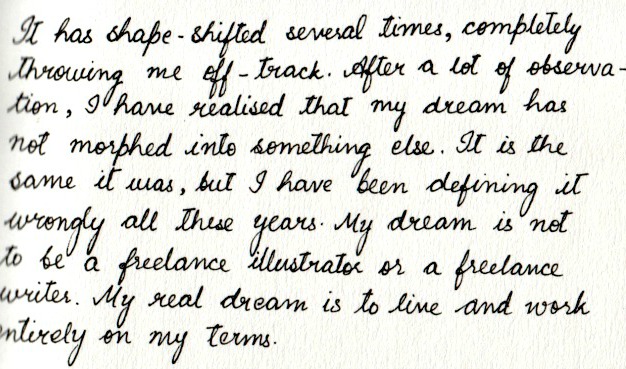 It has shape-shifted several times, completely
throwing me off-track. After a lot of observa-
tion, I have realised that my dream has
not morphed into something else. It is the
same it was, but I have been defining it
wrongly all these years. My dream is not
to be a freelance illustrator or a freelance
writer. My real dream is to live and work
entirely on my terms.